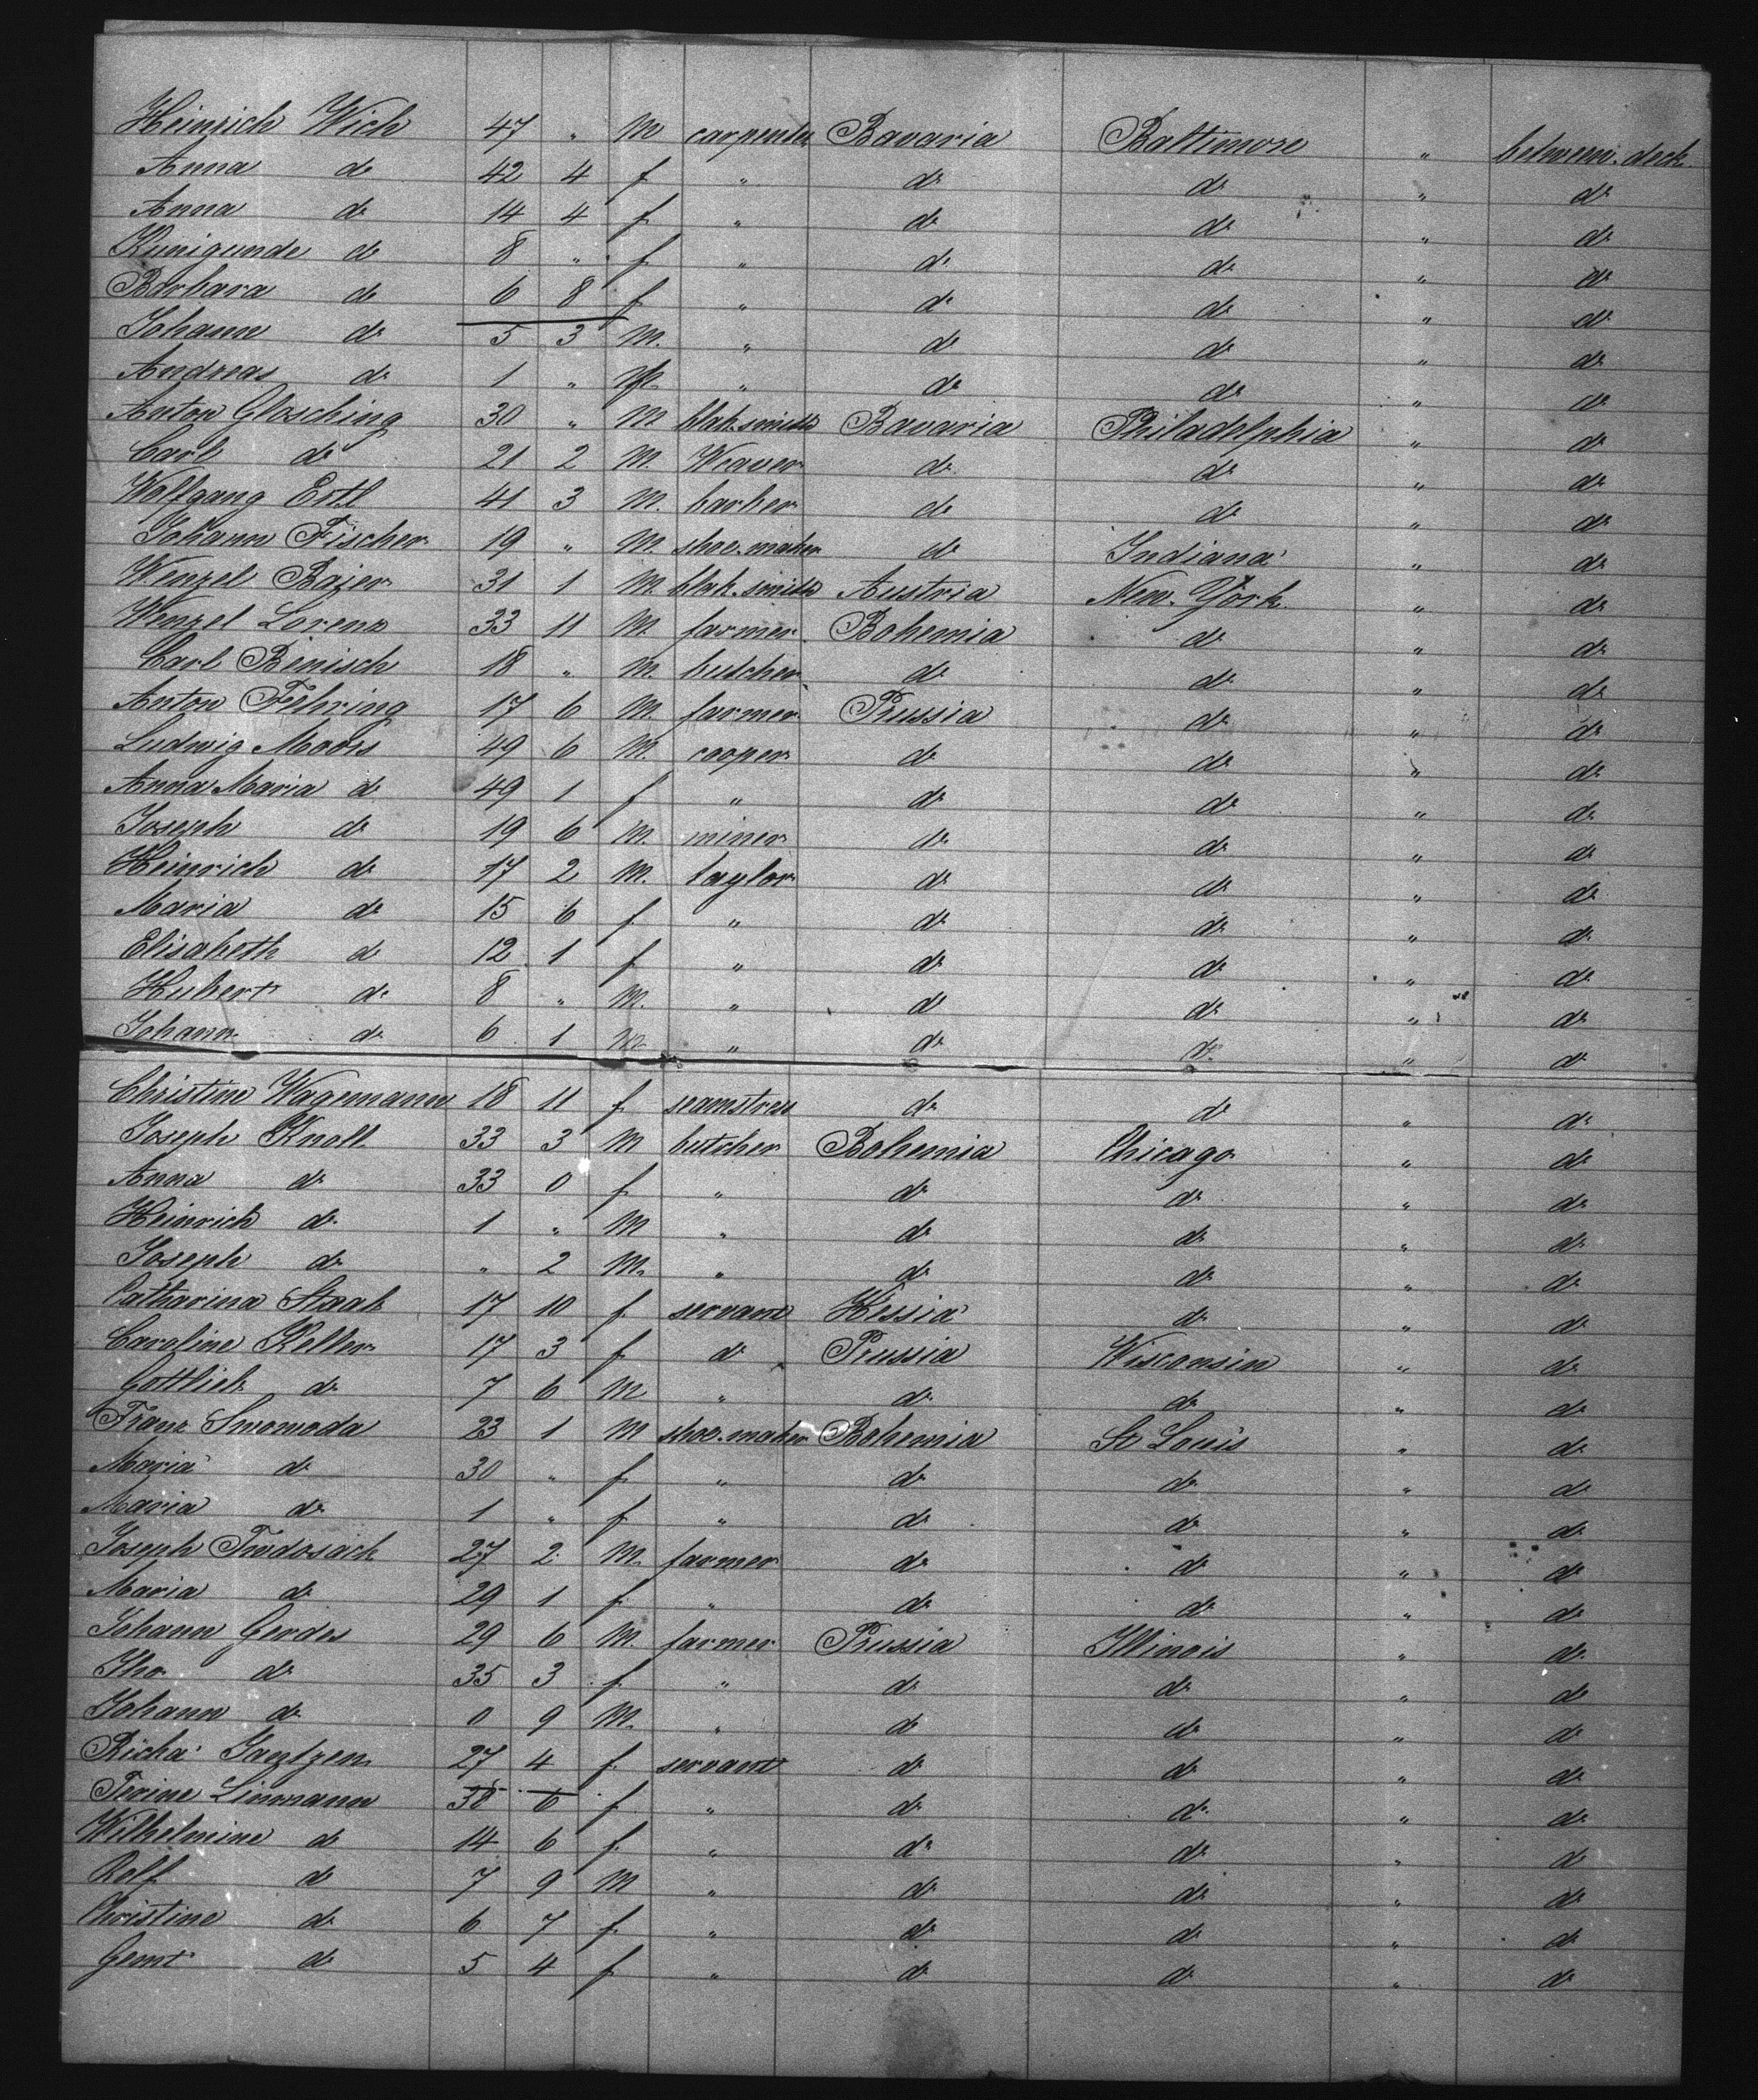 Heinrich Wich 47 " M carpenter Bavaria Baltimore " between deck
Anna do 42 4 f " do do " do
Anna do 14 4 f " do do " do
Kunigunde do 8 " f " do do " do
Barbara do 6 8 f " do do " do
Johann do 5 3 M. " do do " do
Andreas do 1 " " do do " do
Anton Glosching 30 " M blak.smith Bavaria Philadelphia " do
Carl do 21 2 M. Weaver do do " do
Wolfgang Ertl 41 3 M. barber do do " do
Johann Fischer 19 " M. shoe.maker do Indiana " do
Wenzel Baier 31 1 M. blak.smith Austria New.York " do
Wenzel Lorenz 33 11 M. farmer Bohemia do " do
Carl Benisch 18 " M. butcher do do " do
Anton Fehring 17 6 M. farmer Prussia do " do
Ludwig Moors 49 6 M. cooper do do " do
Anna Maria do 49 1 f " do do " do
Joseph do 19 6 M. miner do do " do
Heinrich do 17 2 M. taylor do do " do
Maria do 15 6 f " do do " do
Elisabeth do 12 1 f " do do " do
Hubert do 8 " M. " do do " do
Johann do 6 1 M " do do " do
Christine Wagemann 18 11 f seamstress do do " do
Joseph Knoll 33 3 M butcher Bohemia Chicago " do
Anna do 33 0 f " do do " do
Heinrich do 1 " M " do do " do
Joseph do " 2 M. " do do " do
Catharina Staab 17 10 f servant Hessia do " do
Caroline Keller 17 3 f do Prussia Wisconsin " do
Gottlieb do 7 6 M " do do " do
Franz Swowoda 23 1 M shoe.maker Bohemia St Louis " do
Maria do 30 " f " do do " do
Maria do 1 " f " do do " do
Joseph 27 2 M. farmer do do " do
Maria do 29 1 f " do do " do
Johann Gerdes 29 6 M. farmer Prussia Illinois " do
do 35 3 f " do do " do
Johann do 0 9 M. " do do " do
Richa Jantzen 27 4 f servant do do " do
38 6 f " do do " do
Wilhelmine do 14 6 f " do do " do
Rolf do 7 9 M " do do " do
Christine do 6 7 f " do do " do
do 5 4 f " do do " do